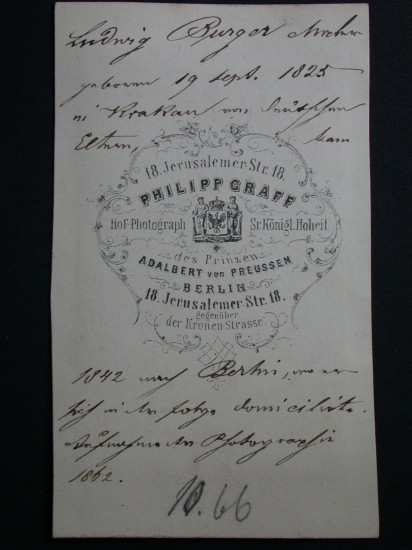 Ludwig Burger
geboren 19 Sept. 1825
in Krakau von deutschen
Eltern, kam
18. Jerusalemer-Str. 18.
PHILIPP GRAFF
Hof-Photograph Sr. Königl. Hoheit
des Prinzen
ADALBERT von PREUSSEN
BERLIN
18. Jerusalemer-Str. 18.
gegenüber
der Kronen-Strasse
1842 nach Berlin, wo er
sich in der Folge domicilirte.
Aufnahme der Photographie
1862.
10.66